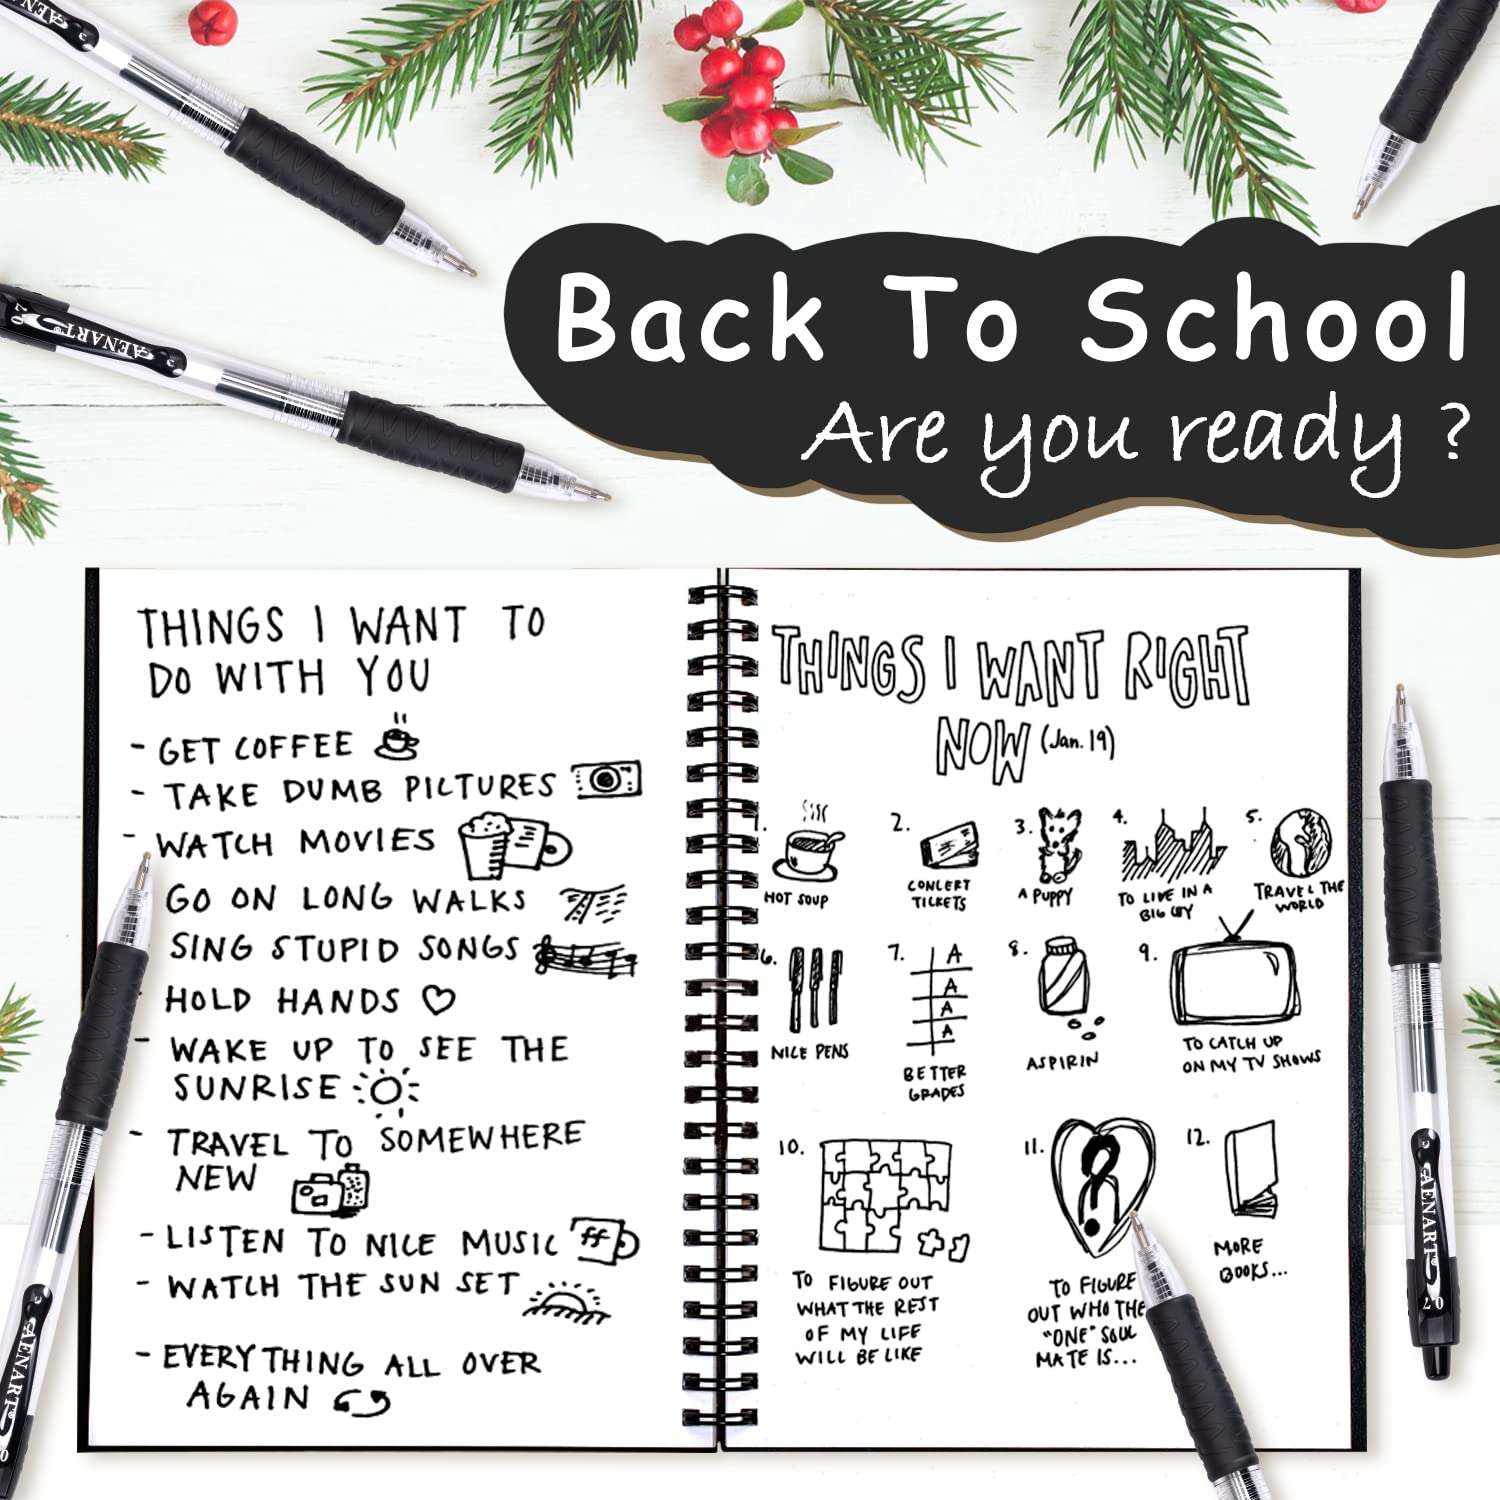 Back To School
Are you ready ?
AENART
0.7
THINGS I WANT TO
DO WITH YOU
- GET COFFEE
- TAKE DUMB PICTURES
- WATCH MOVIES
GO ON LONG WALKS
SING STUPID SONGS
HOLD HANDS
- WAKE UP TO SEE THE
SUNRISE
- TRAVEL TO SOMEWHERE
NEW
- LISTEN TO NICE MUSIC
ff
- WATCH THE SUN SET
- EVERYTHING ALL OVER
AGAIN
THINGS I WANT RIGHT
NOW (Jan. 19)
1.
HOT SOUP
2.
CONCERT
TICKETS
3.
A PUPPY
4.
TO LIVE IN A
BIG CITY
5.
TRAVEL THE
WORLD
6.
NICE PENS
7.
A
A
A
A
BETTER
GRADES
8.
ASPIRIN
9.
TO CATCH UP
ON MY TV SHOWS
10.
TO FIGURE OUT
WHAT THE REST
OF MY LIFE
WILL BE LIKE
11.
?
TO FIGURE
OUT WHO THE
"ONE" SOUL
MATE IS...
12.
MORE
BOOKS...
AENART
0.7
AENART
0